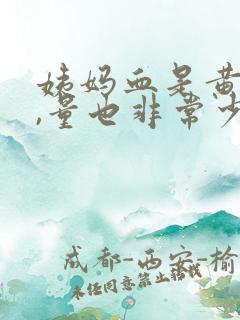 姨妈血是黄
,量也非常少
成都-西安-榆
未经同意禁止转载